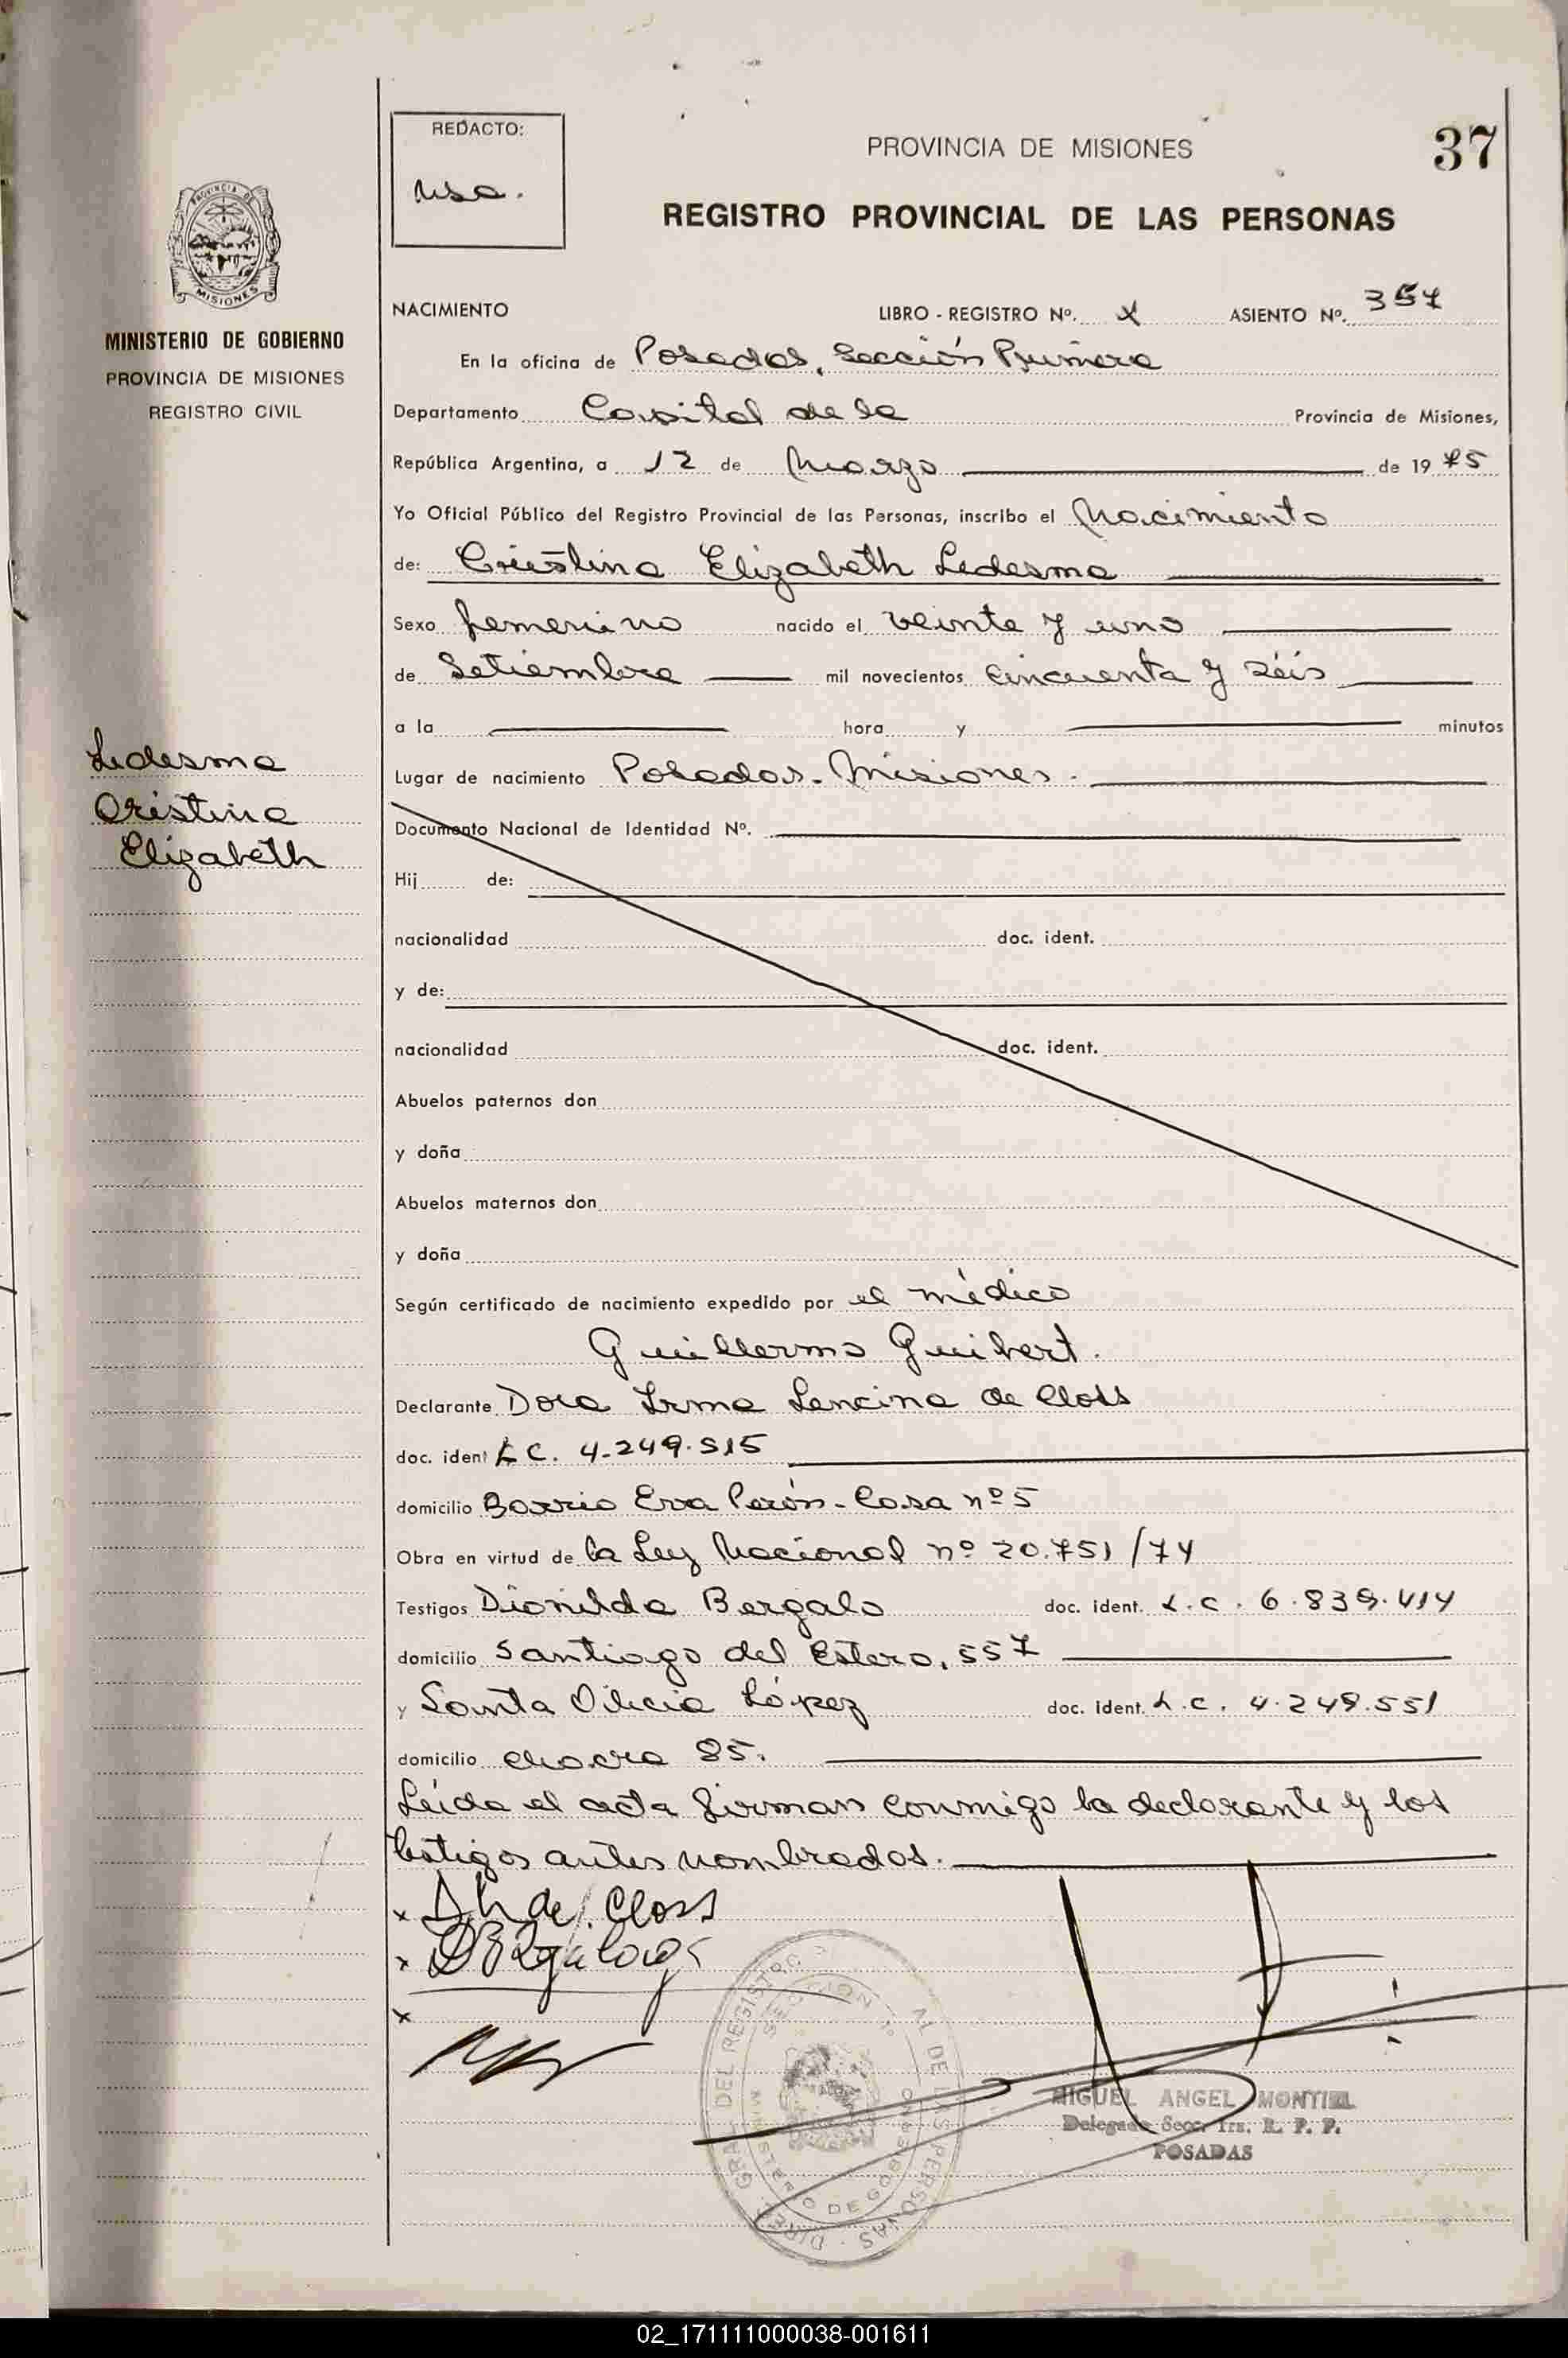 37
REDACTO:
PROVINCIA DE MISIONES
REGISTRO PROVINCIAL DE LAS PERSONAS
PROVINCIA DE
MISIONES
MINISTERIO DE GOBIERNO
PROVINCIA DE MISIONES
REGISTRO CIVIL
NACIMIENTO LIBRO - REGISTRO Nº. ASIENTO Nº. 357
En la oficina de Posadas, Sección Primera
Departamento Capital de la Provincia de Misiones,
República Argentina, a 12 de Marzo de 1975
Yo Oficial Público del Registro Provincial de las Personas, inscribo el Nacimiento
de: Cristina Elizabeth Ledesma
Sexo femenino nacido el veinte y uno
de Setiembre mil novecientos cincuenta y séis
a la hora y minutos
Ledesma
Cristina
Elizabeth
Lugar de nacimiento Posadas - Misiones.
Documento Nacional de Identidad Nº.
Hij de:
nacionalidad doc. ident.
y de:
nacionalidad doc. ident.
Abuelos paternos don
y doña
Abuelos maternos don
y doña
Según certificado de nacimiento expedido por el médico
Guillermo Guibert.
Declarante Dora Irma Lencina de Closs
doc. ident L C. 4-249.515
domicilio Barrio Eva Perón - Casa nº 5
Obra en virtud de la Ley Nacional nº 20.751/74
Testigos Dionilda Bergalo doc. ident. L.C. 6.839.414
domicilio Santiago del Estero, 557
y Santa López doc. ident. L.C. 4.249.551
domicilio chacra 85.
Leída el acta firman conmigo la declarante y los
testigos antes nombrados.
de Closs
MIGUEL ANGEL MONTIEL
Delegado Secc. 1ra. R. P. P.
POSADAS
02_171111000038-001611